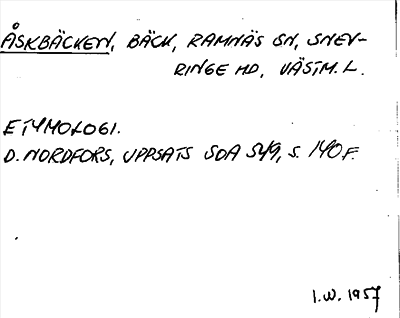 ÅSKBÄCKEN, BÄCK, RAMNÄS SN, SNEV-
RINGE HD, VÄSTM. L.
ETYMOLOGI.
D. NORDFORS, UPPSATS SOA 549, S. 140 F.
I.W. 1957